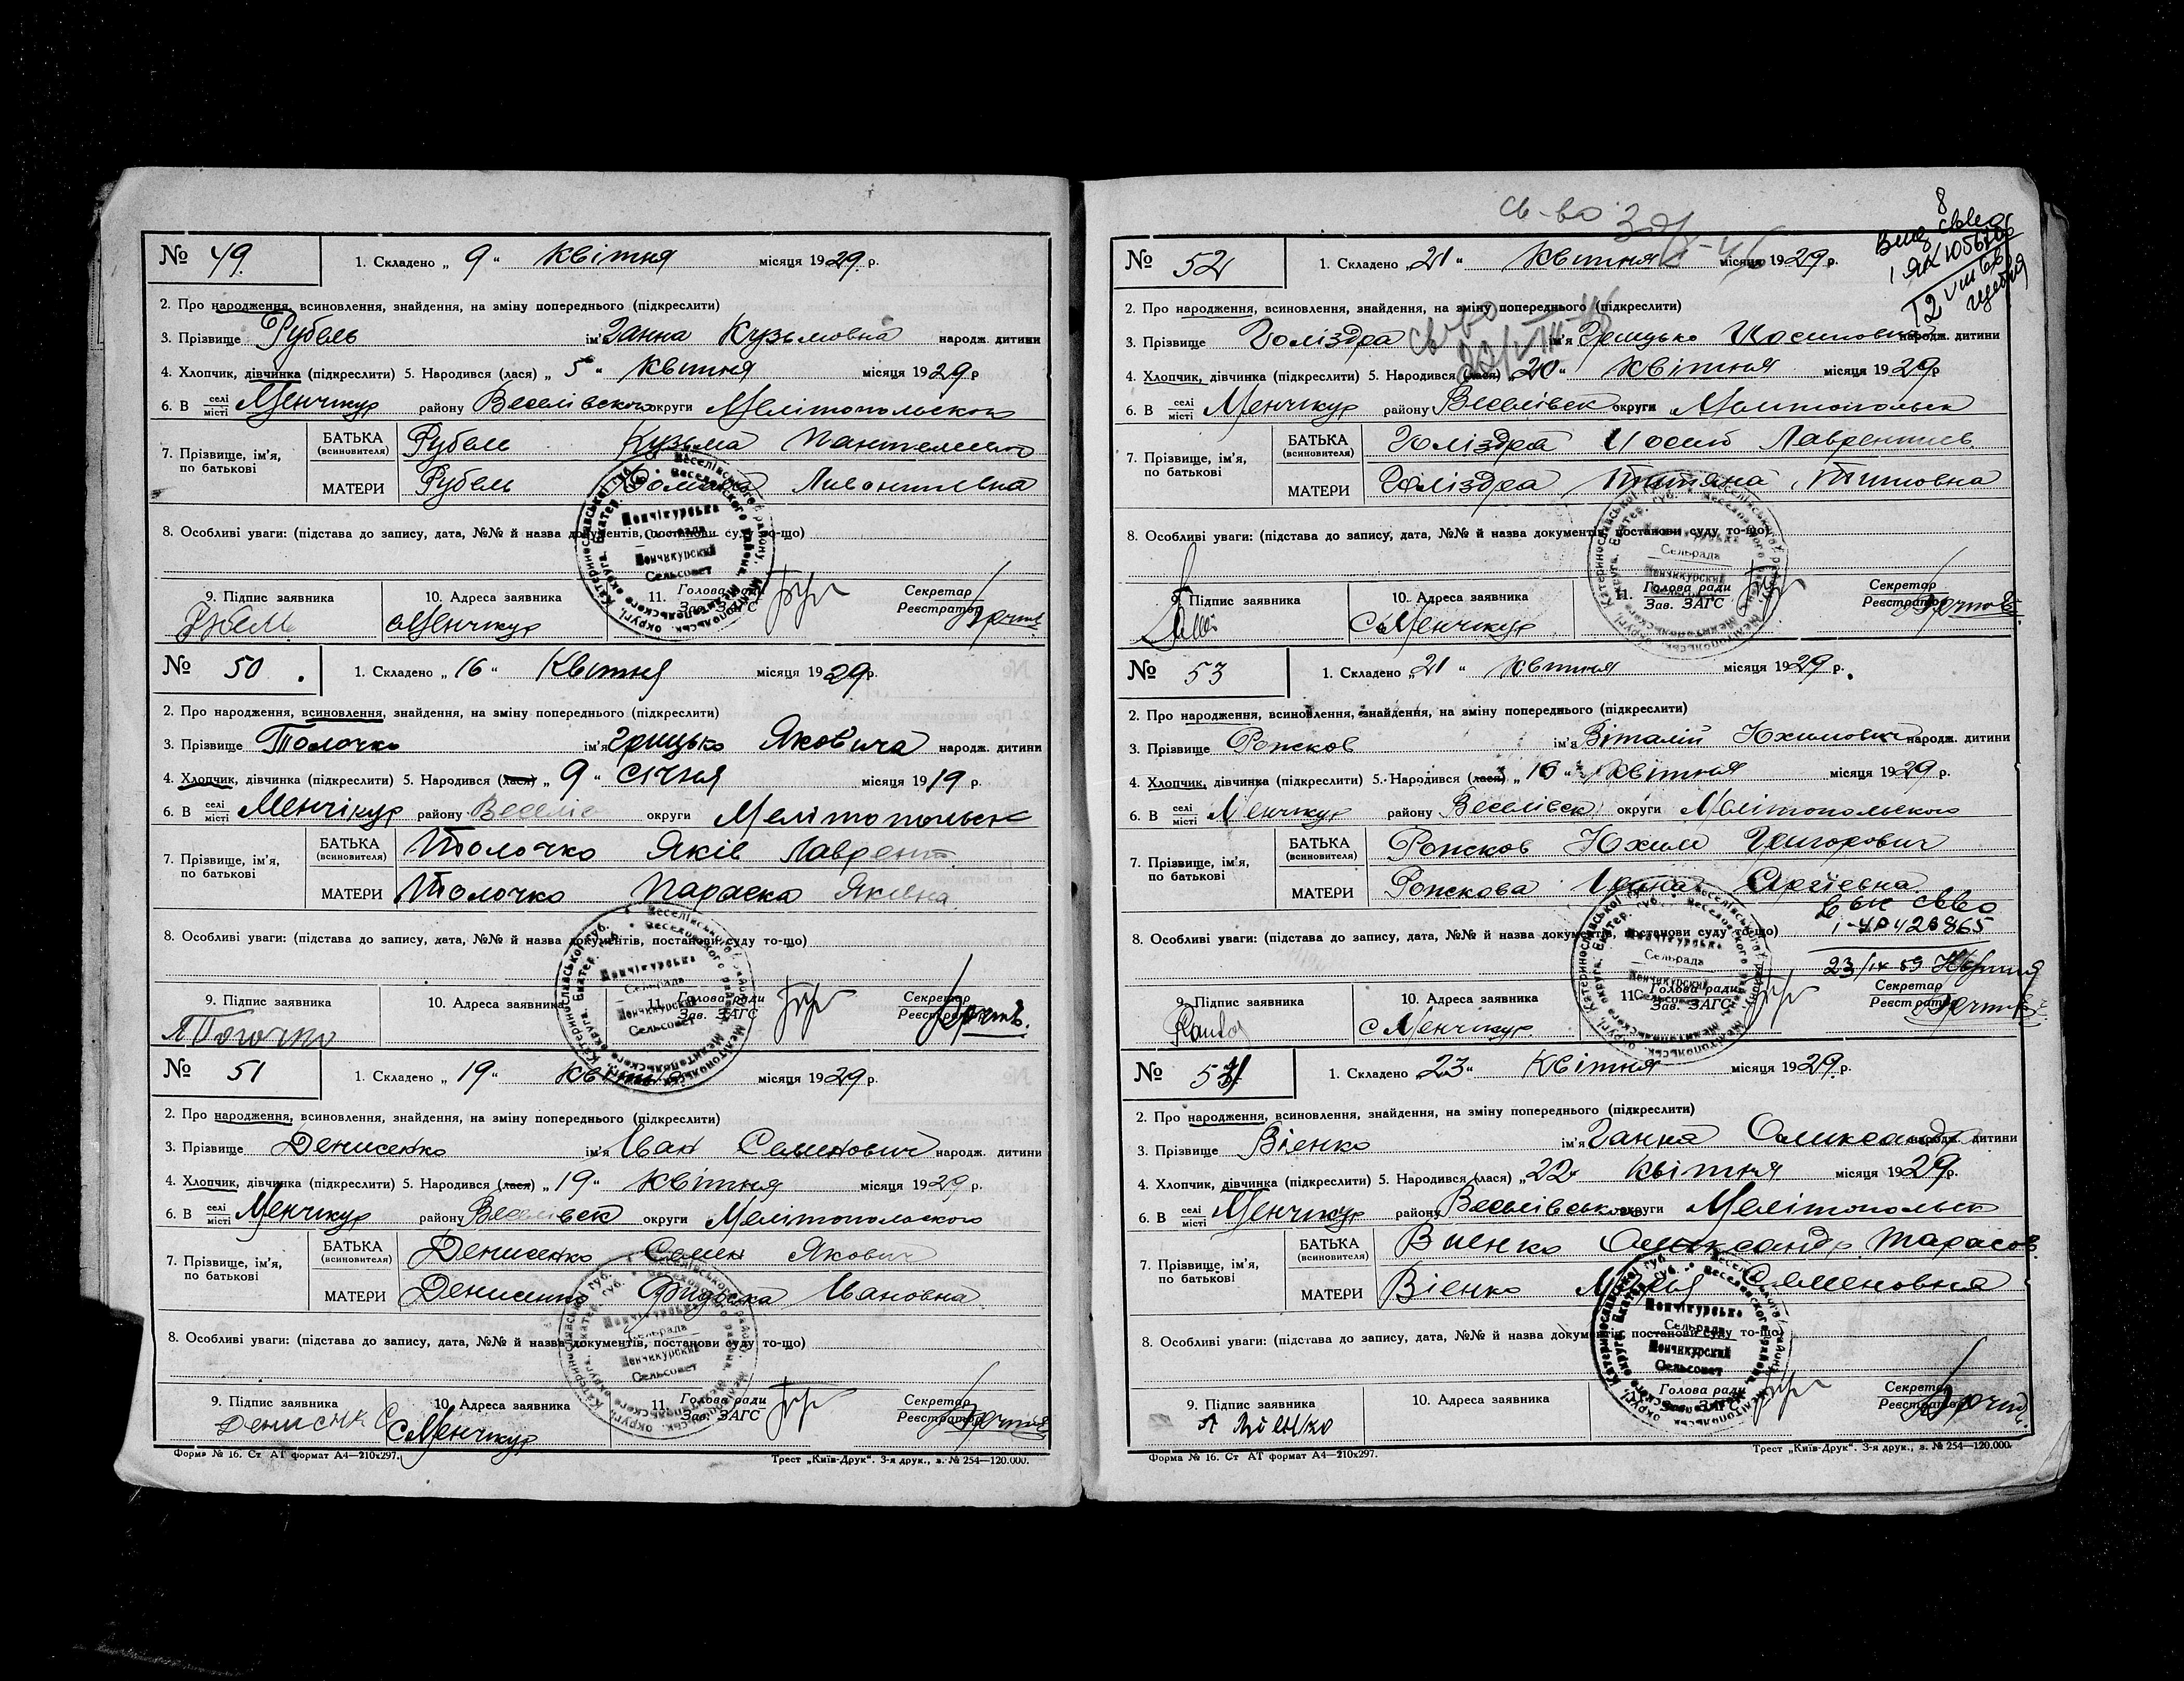 № 49. 1. Складено „ 9 “ Квітня місяця 1929 р.
2. Про народження, всиновлення, знайдення, на зміну попереднього (підкреслити)
3. Прізвище Рубель ім'я Ганна Кузьмовна народж. дитини
4. Хлопчик, дівчинка (підкреслити) 5. Народився (лася) „ 5 “ Квітня місяця 1929 р
6. В селі місті Менчікур району Веселівского округи Мелітопольского
7. Прізвище, ім'я, по батькові
БАТЬКА (всиновителя) Рубель Кузьма
МАТЕРИ Рубель
8. Особливі уваги: (підстава до запису, дата, №№ й назва документів, постанови суду то-що)
9. Підпис заявника 10. Адреса заявника 11. Голова ради Зав. ЗАГС Секретар Реєстратор
Рубель с Менчикур
№ 50. 1. Складено „ 16 “ Квітня місяця 1929 р.
2. Про народження, всиновлення, знайдення, на зміну попереднього (підкреслити)
3. Прізвище Толочко ім'я Грицько Яковича народж. дитини
4. Хлопчик, дівчинка (підкреслити) 5. Народився (лася) „ 9 “ січня місяця 1919 р.
6. В селі місті Менчікур району округи Мелітопольск
7. Прізвище, ім'я, по батькові
БАТЬКА (всиновителя) Толочко Яків Лаврент.
МАТЕРИ Толочко Параска Яківна
8. Особливі уваги: (підстава до запису, дата, №№ й назва документів, постанови суду то-що)
9. Підпис заявника 10. Адреса заявника 11. Голова ради Зав. ЗАГС Секретар Реєстратор
№ 51 1. Складено „ 19 “ Квітня місяця 1929 р.
2. Про народження, всиновлення, знайдення, на зміну попереднього (підкреслити)
3. Прізвище Денисенко ім'я Іван Семенович народж. дитини
4. Хлопчик, дівчинка (підкреслити) 5. Народився (лася) „ 19 “ Квітня місяця 1929 р.
6. В селі місті Менчікур району Веселівск округи Мелітопольского
7. Прізвище, ім'я, по батькові
БАТЬКА (всиновителя) Денисенко Семен Якович
МАТЕРИ Денисенко Ивановна
8. Особливі уваги: (підстава до запису, дата, №№ й назва документів, постанови суду то-що)
9. Підпис заявника 10. Адреса заявника 11. Голова ради Зав. ЗАГС Секретар Реєстратор
с Менчикур
Форма № 16. Ст АТ формат А4—210х297. Трест „Київ-Друк“. 3-я друк., з. № 254—120.000.
св-во
№ 52 1. Складено „ 21 “ Квітня місяця 1929 р.
2. Про народження, всиновлення, знайдення, на зміну попереднього (підкреслити)
3. Прізвище Голіздра ім'я Грицько народж. дитини
4. Хлопчик, дівчинка (підкреслити) 5. Народився (лася) „ 20 “ Квітня місяця 1929 р
6. В селі місті Менчікур району Веселівск округи Мелітопольск
7. Прізвище, ім'я, по батькові
БАТЬКА (всиновителя) Голіздра Лаврентиев.
МАТЕРИ Голіздра Титяна Титовна
8. Особливі уваги: (підстава до запису, дата, №№ й назва документів, постанови суду то-що)
9. Підпис заявника 10. Адреса заявника 11. Голова ради Зав. ЗАГС Секретар Реєстратор
с Менчикур
№ 53 1. Складено „ 21 “ Квітня місяця 1929 р.
2. Про народження, всиновлення, знайдення, на зміну попереднього (підкреслити)
3. Прізвище ім'я Віталій народж. дитини
4. Хлопчик, дівчинка (підкреслити) 5. Народився (лася) „ 16 “ Квітня місяця 1929 р.
6. В селі місті Менчикур району Веселівск округи Мелітопольского
7. Прізвище, ім'я, по батькові
БАТЬКА (всиновителя) Юхим Григорович
МАТЕРИ Сергіевна
8. Особливі уваги: (підстава до запису, дата, №№ й назва документів, постанови суду то-що)
9. Підпис заявника 10. Адреса заявника 11. Голова ради Зав. ЗАГС Секретар Реєстратор
с Менчикур
№ 54 1. Складено „ 23 “ Квітня місяця 1929 р.
2. Про народження, всиновлення, знайдення, на зміну попереднього (підкреслити)
3. Прізвище Вієнко ім'я Ганна народж. дитини
4. Хлопчик, дівчинка (підкреслити) 5. Народився (лася) „ 22 “ Квітня місяця 1929 р.
6. В селі місті Менчикур району Веселівського округи Мелітопольск
7. Прізвище, ім'я, по батькові
БАТЬКА (всиновителя) Виенко Олександр Тарасов.
МАТЕРИ Вієнко Марія Семеновна
8. Особливі уваги: (підстава до запису, дата, №№ й назва документів, постанови суду то-що)
9. Підпис заявника 10. Адреса заявника 11. Голова ради Зав. ЗАГС Секретар Реєстратор
Форма № 16. Ст АТ формат А4—210х297. Трест „Київ-Друк“. 3-я друк., з. № 254—120.000.